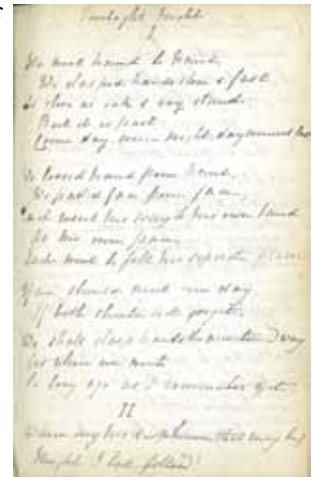 Twilight Night
I
We met hand to hand,
We clasped hands close & fast
As close as oak & ivy stand.
But it is past:
Come day, come night, day comes at last.
We loosed hand from hand,
We parted face from face,
Each went his way to his own land
At his own pace,
Each went to fill his separate place.
If we should meet one day
If both should not forget,
We shall clasp hands the accustomed way
As when we met
So long ago as I remember yet.
II
Where my heart is